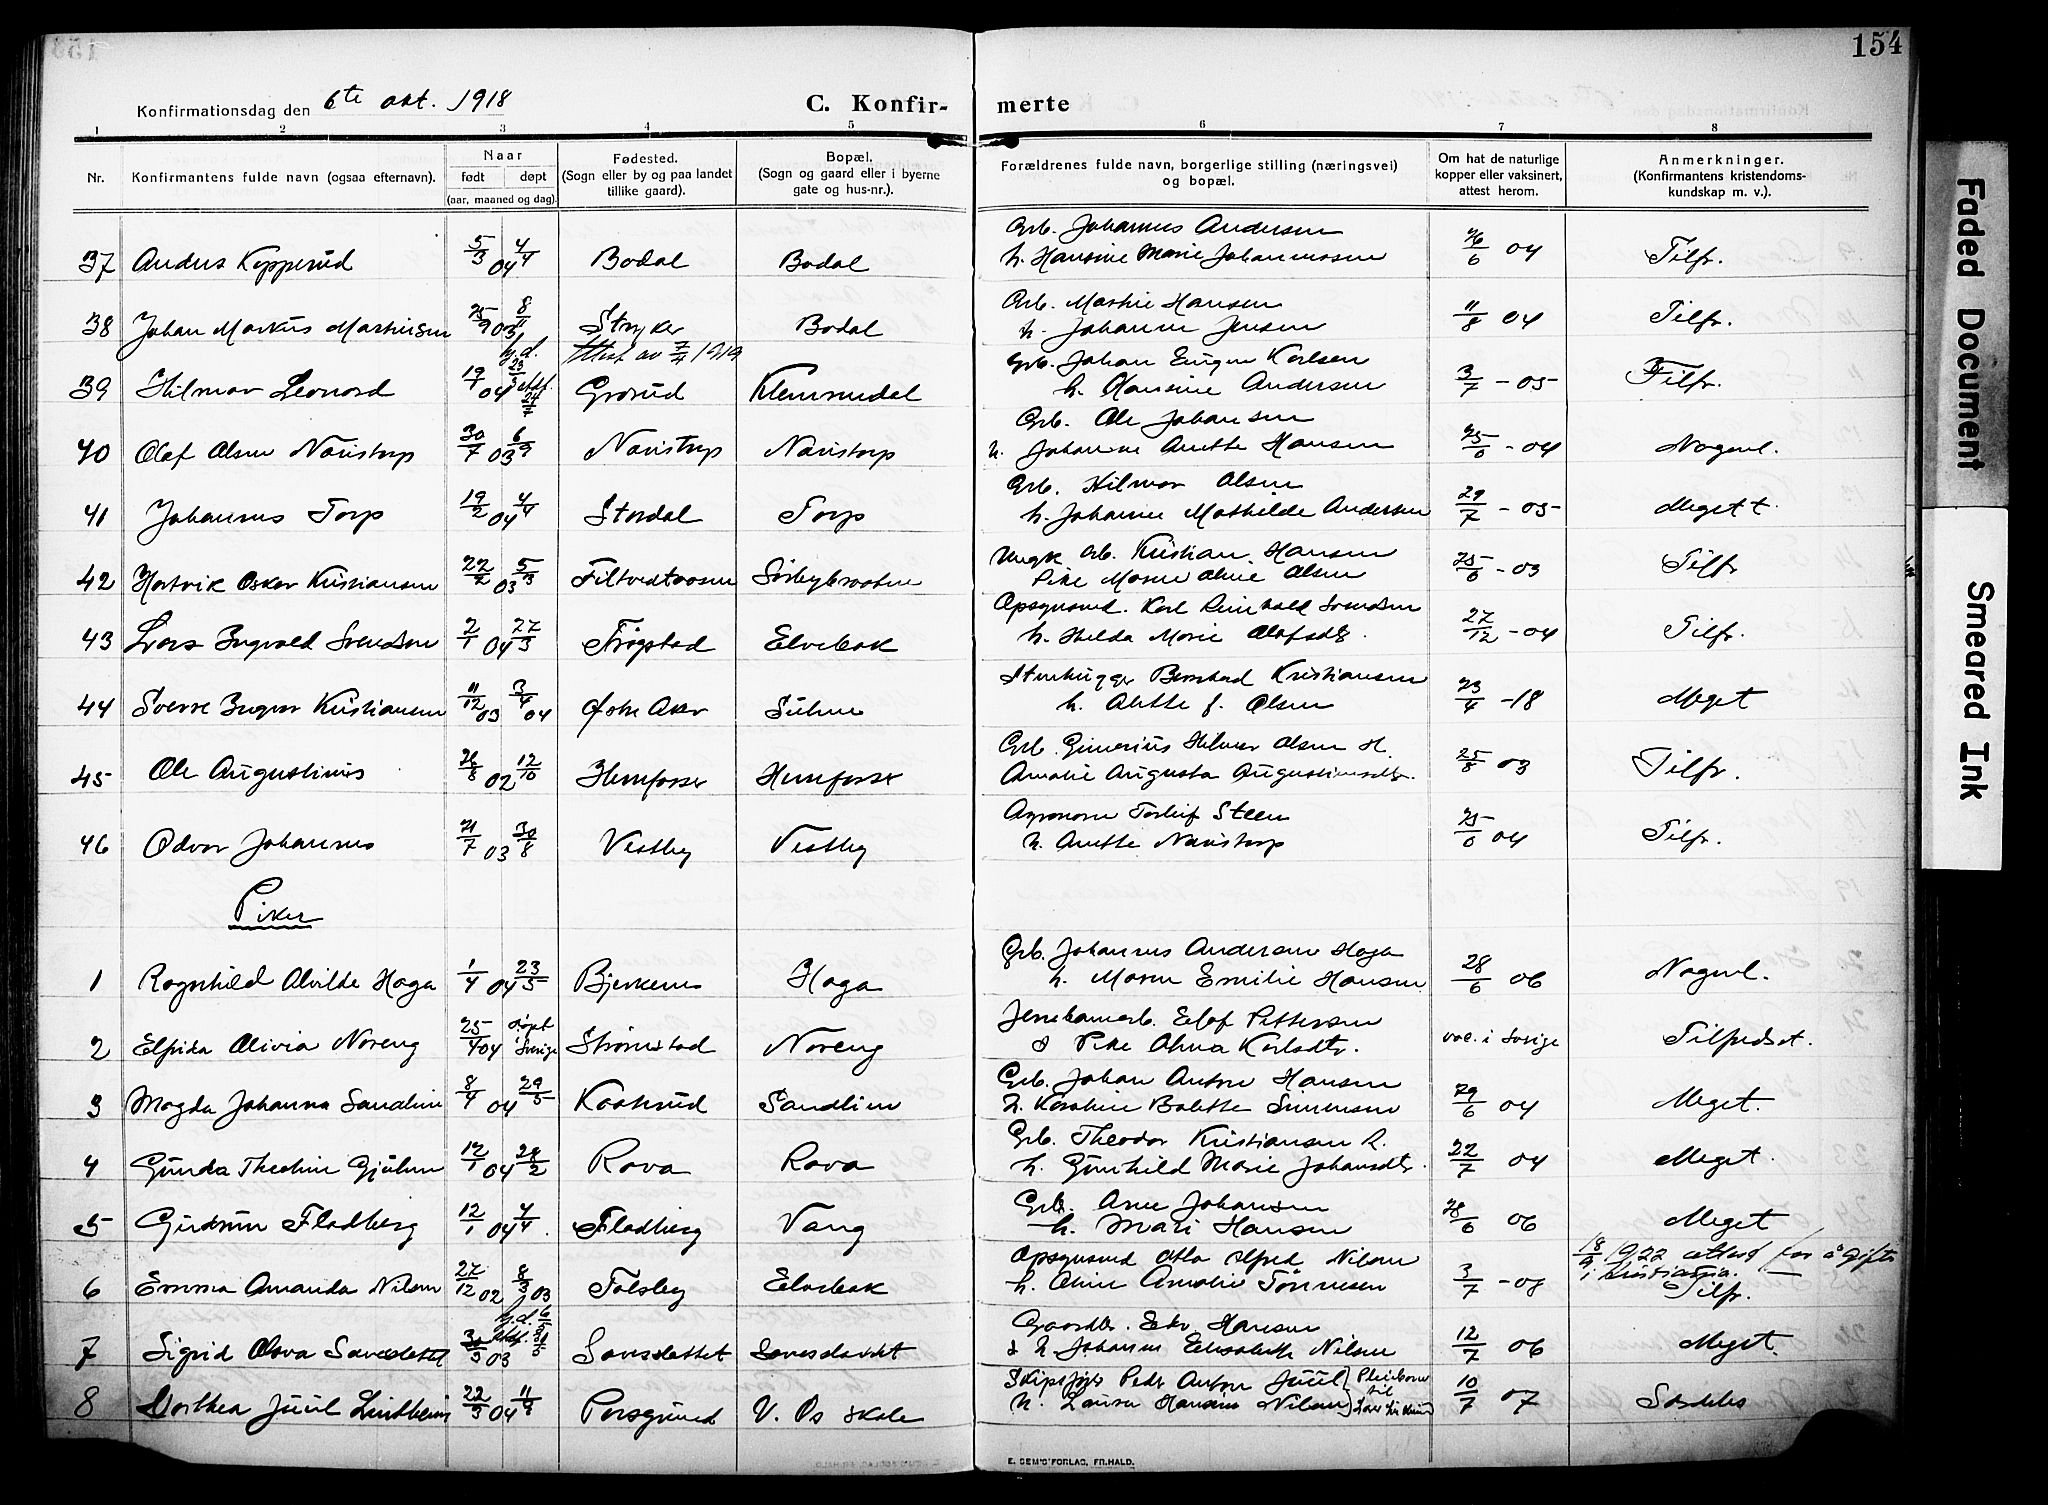 154
Konfirmationsdag den 6te okt. 1918
C. Konfirmerte
1 2 3 4 5 6 7 8
Nr. Konfirmantens fulde navn (ogsaa efternavn). Naar født døpt (aar, maaned og dag). Fødested. (Sogn eller by og paa landet tillike gaard). Bopæl. (Sogn og gaard eller i byerne gate og hus-nr.). Forældrenes fulde navn, borgerlige stilling (næringsvei) og bopæl. Om hat de naturlige kopper eller vaksinert, attest herom. Anmerkninger. (Konfirmantens kristendomskundskap m. v.).
37 Anders Kopperud 5/3 04 4/4 Bodal Bodal Arb. Johannes Andersen h. Hansine Marie Johannessen 26/6 04 Tilfr.
38 Johan Markus Martinsen 25/9 03 8/11 Stryker Bodal Arb. Martin Hansen h. Johanne Jensen 11/8 04 Tilfr.
39 Hilmar Leonard 19/7 04 Attest av 7/4 1919 Grorud Klemmedal Arb. Johan Eugen Karlsen h. Hansine Andersen 3/7 - 05 Tilfr.
40 Olef Olsen Navistorp 30/7 03 6/9 Navistorp Navistorp Arb. Ole Johansen h. Johanne Anette Hansen 25/6 - 04 Nogenl.
41 Johannes Torp 19/2 04 4/4 Stordal Torp Arb. Hilmar Olsen h. Johanne Mathilde Andersen 29/7 - 05 Meget t
42 Hartvik Oskar Kristiansen 22/2 03 5/3 Filtvedtaasen Sørbybraaten Ungk. Arb. Kristian Hansen Pike Maren Oline Olsen 25/6 - 03 Tilfr
43 Lars Ingvald Svendsen 2/1 04 27/3 Trøgstad Elvebak Opsynsmd. Karl Reinhold Svendsen h. Hilda Marie Olafsdtr. 27/12 - 04 Tilfr.
44 Sverre Ingvar Kristiansen 11/12 03 3/4 04 Østre Aker Suhne Stenhugger Bernhard Kristiansen h. Alette f. Olsen 23/4 - 18 Meget
45 Ole Augustinus 26/8 02 12/10 Hemfosser Hemfosser Arb. Gunerius Hilmar Olsen H. Amalie Augusta Augustinusdtr. 25/8 03 Tilfr.
46 Odvar Johannes 21/7 03 30/8 Vestby Vestby Agronom Torleif Steen h. Anette Navistorp 25/6 04 Tilfr.
Piker
1 Ragnhild Alvilde Haga 1/4 04 23/5 Bjerkenes Haga Arb. Johannes Andersen Haga h. Maren Emilie Hansen 28/6 06 Nogenl.
2 Elfrida Olivia Noreng 25/4 04 døpt i Sverige Strømstad Noreng Jernbanearb. Elof Pettersen & Pike Alma Karlsdtr. vac. i Sverige Tilfredsst.
3 Magda Johanna Sandlien 8/4 04 29/5 Kaatrud Sandlien Arb. Johan Anton Hansen h. Karoline Bolette Simensen 29/6 04 Meget.
4 Gunda Theoline Gjulem 12/1 04 28/2 Rova Rova Arb. Theodor Kristiansen R. h. Gunhild Marie Johansdtr. 22/7 04 Meget.
5 Gudrun Fladberg 12/1 04 4/4 Fladberg Vang Arb. Arne Johansen h. Mari Hansen 28/6 06 Meget
6 Emma Amanda Nilsen 27/12 02 8/3 03 Folsby Elvebak Opsynsmd Otto Alfred Nilsen h. Oline Amalie Tønnesen 3/7 - 08 18/9 1922 attest for å gifte i Kristiania. Tilfr.
7 Sigrid Olava 30/3 03 Gaardbr. h. Johanne Elisabeth Nilsen 12/7 06 Meget.
8 Dorthea Juul Lindheim 22/3 04 11/9 Porsgrund V. Os skole Skipsfører Peder Anton Juul h. Laura Hansine Nilsen Pleiebarn til 10/7 07 Særdeles
E. SEM'S FORLAG, FR.HALD.
Faded Document
Smeared Ink